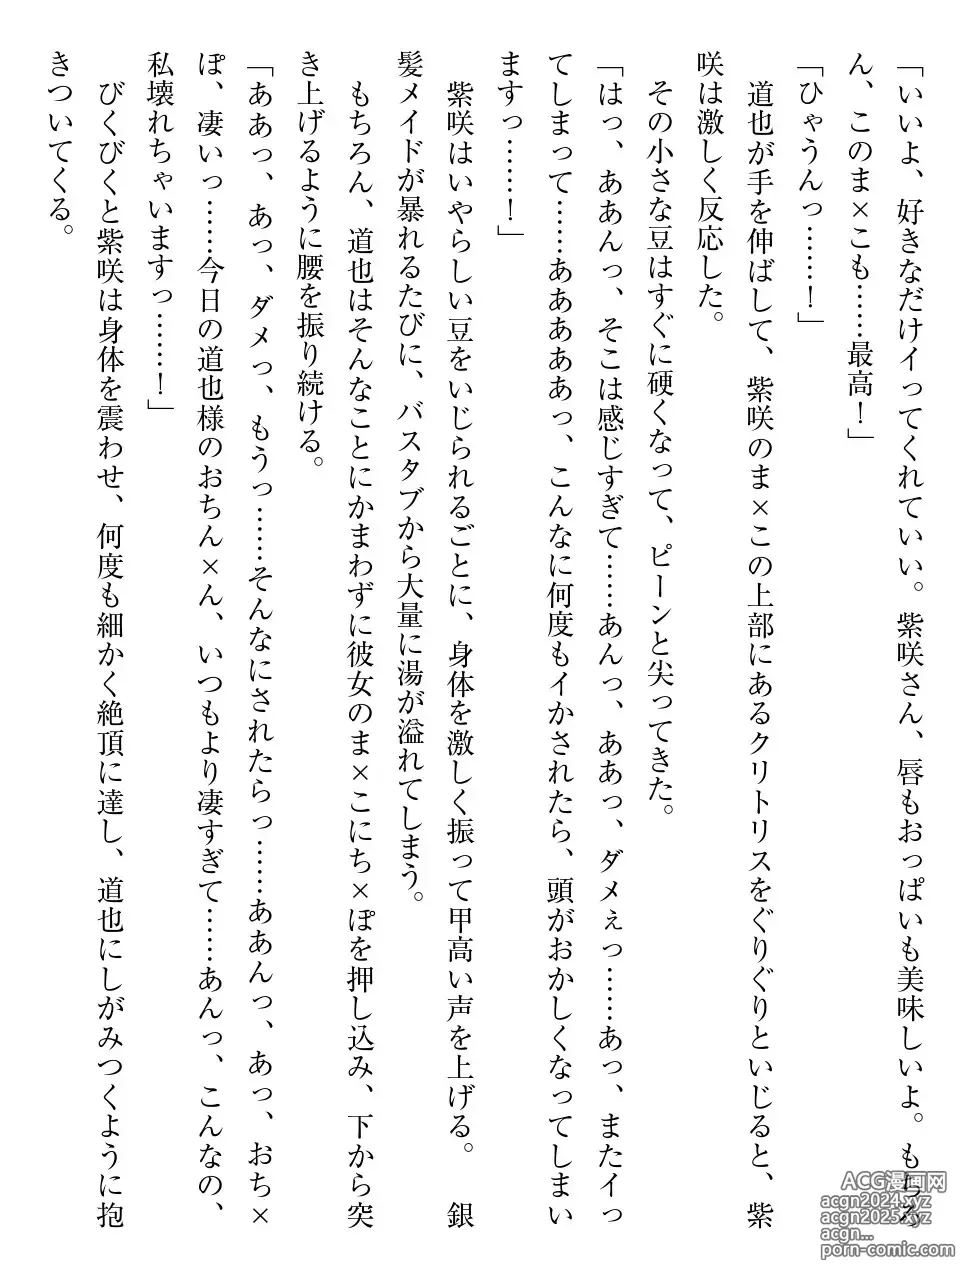 「いいよ、好きなだけイってくれていい。紫咲さん、唇もおっぱいも美味しいよ。もちろ
ん、このま×こも……最高！」
「ひゃうんっ……！」
道也が手を伸ばして、紫咲のま×この上部にあるクリトリスをぐりぐりといじると、紫
咲は激しく反応した。
その小さな豆はすぐに硬くなって、ピーンと尖ってきた。
「はっ、ああんっ、そこは感じすぎて……あんっ、ああっ、ダメぇっ……あっ、またイっ
てしまって……ああああああっ、こんなに何度もイかされたら、頭がおかしくなってしまい
ますっ……！」
紫咲はいやらしい豆をいじられるごとに、身体を激しく振って甲高い声を上げる。　銀
髪メイドが暴れるたびに、バスタブから大量に湯が溢れてしまう。
もちろん、道也はそんなことにかまわずに彼女のま×こにち×ぽを押し込み、下から突
き上げるように腰を振り続ける。
「ああっ、あっ、ダメっ、もうっ……そんなにされたらっ……ああんっ、あっ、おち×
ぽ、凄いっ……今日の道也様のおちん×ん、いつもより凄すぎて……あんっ、こんなの、
私壊れちゃいますっ……！」
びくびくと紫咲は身体を震わせ、何度も細かく絶頂に達し、道也にしがみつくように抱
きついてくる。
ACG漫画网
acgn2024.xyz
acgn2025.xyz
acgn...
porn-comic.com